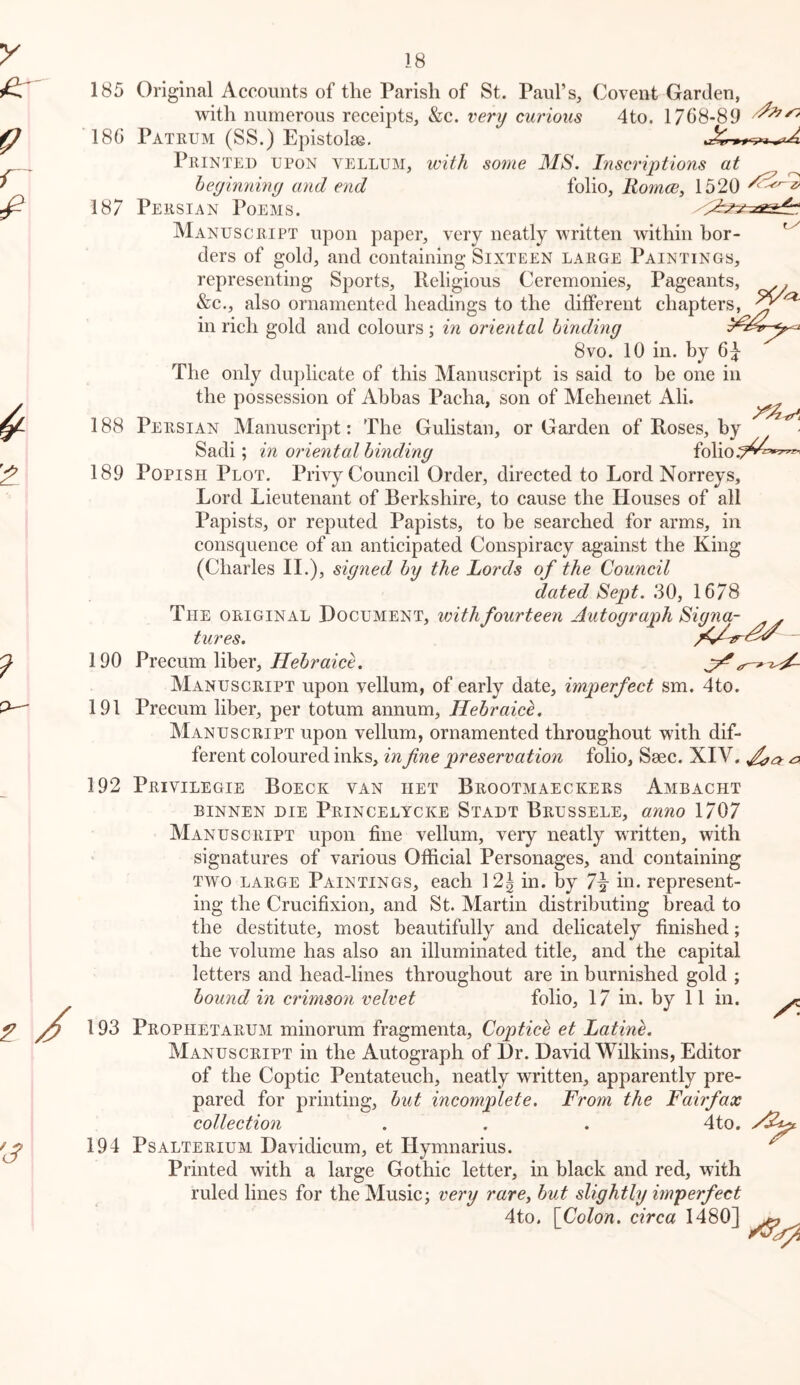 18
185 Original Accounts of the Parish of St. Paul's, Covent Garden,
with numerous receipts, &c. very curious 4to. 1768-89
186 PATRUM (SS.) Epistolæ.
PRINTED UPON VELLUM, with some MS. Inscriptions at
beginning and end folio, Romæ, 1520
187 PERSIAN POEMS.
MANUSCRIPT upon paper, very neatly written within bor-
ders of gold, and containing SIXTEEN LARGE PAINTINGS,
representing Sports, Religious Ceremonies, Pageants,
&c., also ornamented headings to the different chapters,
in rich gold and colours; in oriental binding
8vo. 10 in. by 6¼
The only duplicate of this Manuscript is said to be one in
the possession of Abbas Pacha, son of Mehemet Ali.
188 PERSIAN Manuscript: The Gulistan, or Garden of Roses, by
Sadi; in oriental binding folio
189 POPISH PLOT. Privy Council Order, directed to Lord Norreys,
Lord Lieutenant of Berkshire, to cause the Houses of all
Papists, or reputed Papists, to be searched for arms, in
consquence of an anticipated Conspiracy against the King
(Charles II.), signed by the Lords of the Council
dated Sept. 30, 1678
THE ORIGINAL DOCUMENT, with fourteen Autograph Signa-
tures.
190 Precum liber, Hebraicè.
MANUSCRIPT upon vellum, of early date, imperfect sm. 4to.
191 Precum liber, per totum annum, Hebraicè.
MANUSCRIPT upon vellum, ornamented throughout with dif-
ferent coloured inks, in fine preservation folio, Sæc. XIV.
192 PRIVILEGIE BOECK VAN HET BROOTMAECKERS AMBACHT
BINNEN DIE PRINCELYCKE STADT BRUSSELE, anno 1707
MANUSCRIPT upon fine vellum, very neatly written, with
signatures of various Official Personages, and containing
TWO LARGE PAINTINGS, each 12½ in. by 7½ in. represent-
ing the Crucifixion, and St. Martin distributing bread to
the destitute, most beautifully and delicately finished;
the volume has also an illuminated title, and the capital
letters and head-lines throughout are in burnished gold;
bound in crimson velvet folio, 17 in. by 11 in.
193 PROPHETARUM minorum fragmenta, Copticè et Latinè.
MANUSCRIPT in the Autograph of Dr. David Wilkins, Editor
of the Coptic Pentateuch, neatly written, apparently pre-
pared for printing, but incomplete. From the Fairfax
collection . . . 4to.
194 PSALTERIUM Davidicum, et Hymnarius.
Printed with a large Gothic letter, in black and red, with
ruled lines for the Music; very rare, but slightly imperfect
4to. [Colon. circa 1480]